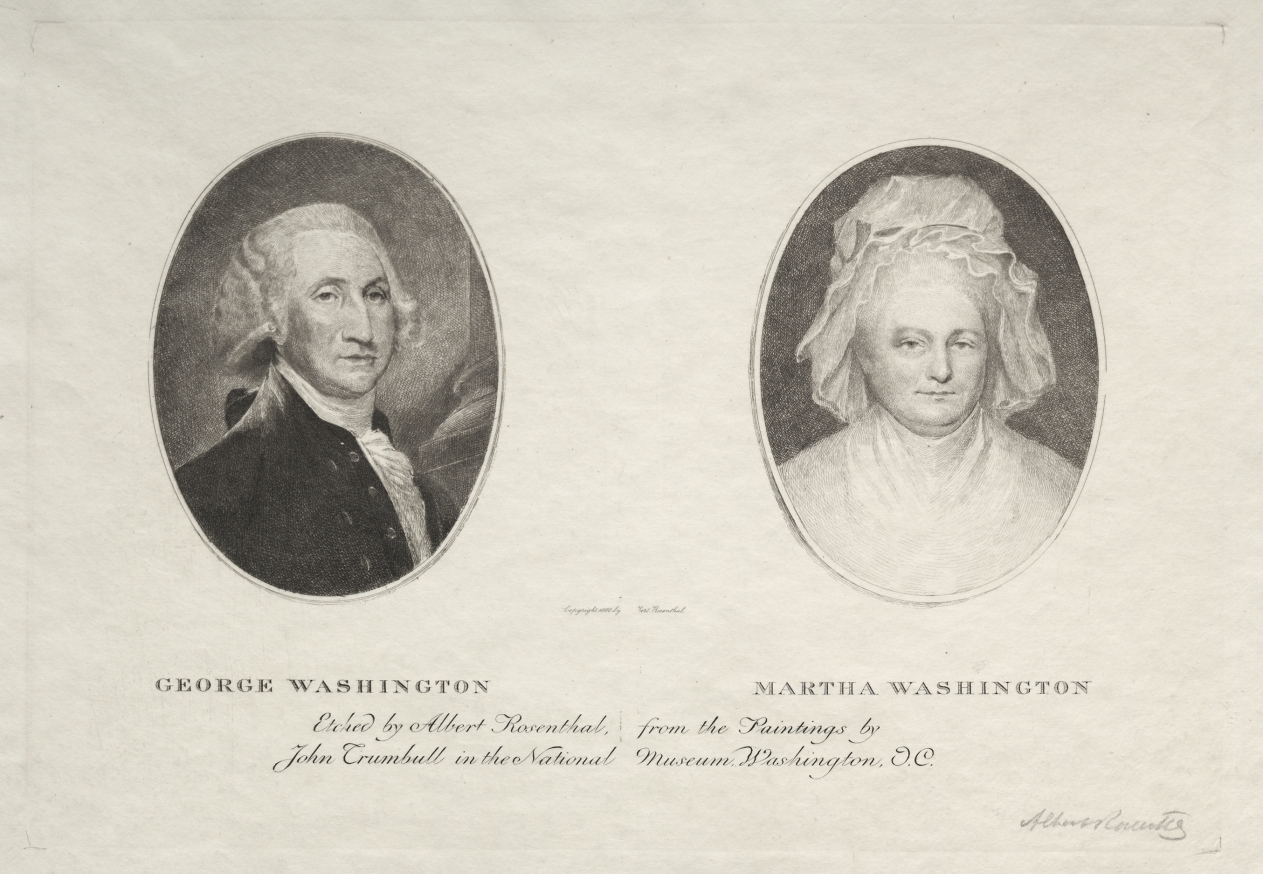 Copyright by Rosenthal
GEORGE WASHINGTON
MARTHA WASHINGTON
Etched by Albert Rosenthal, from the Paintings by
John Trumbull in the National Museum, Washington, D.C.
Albert Rosenthal